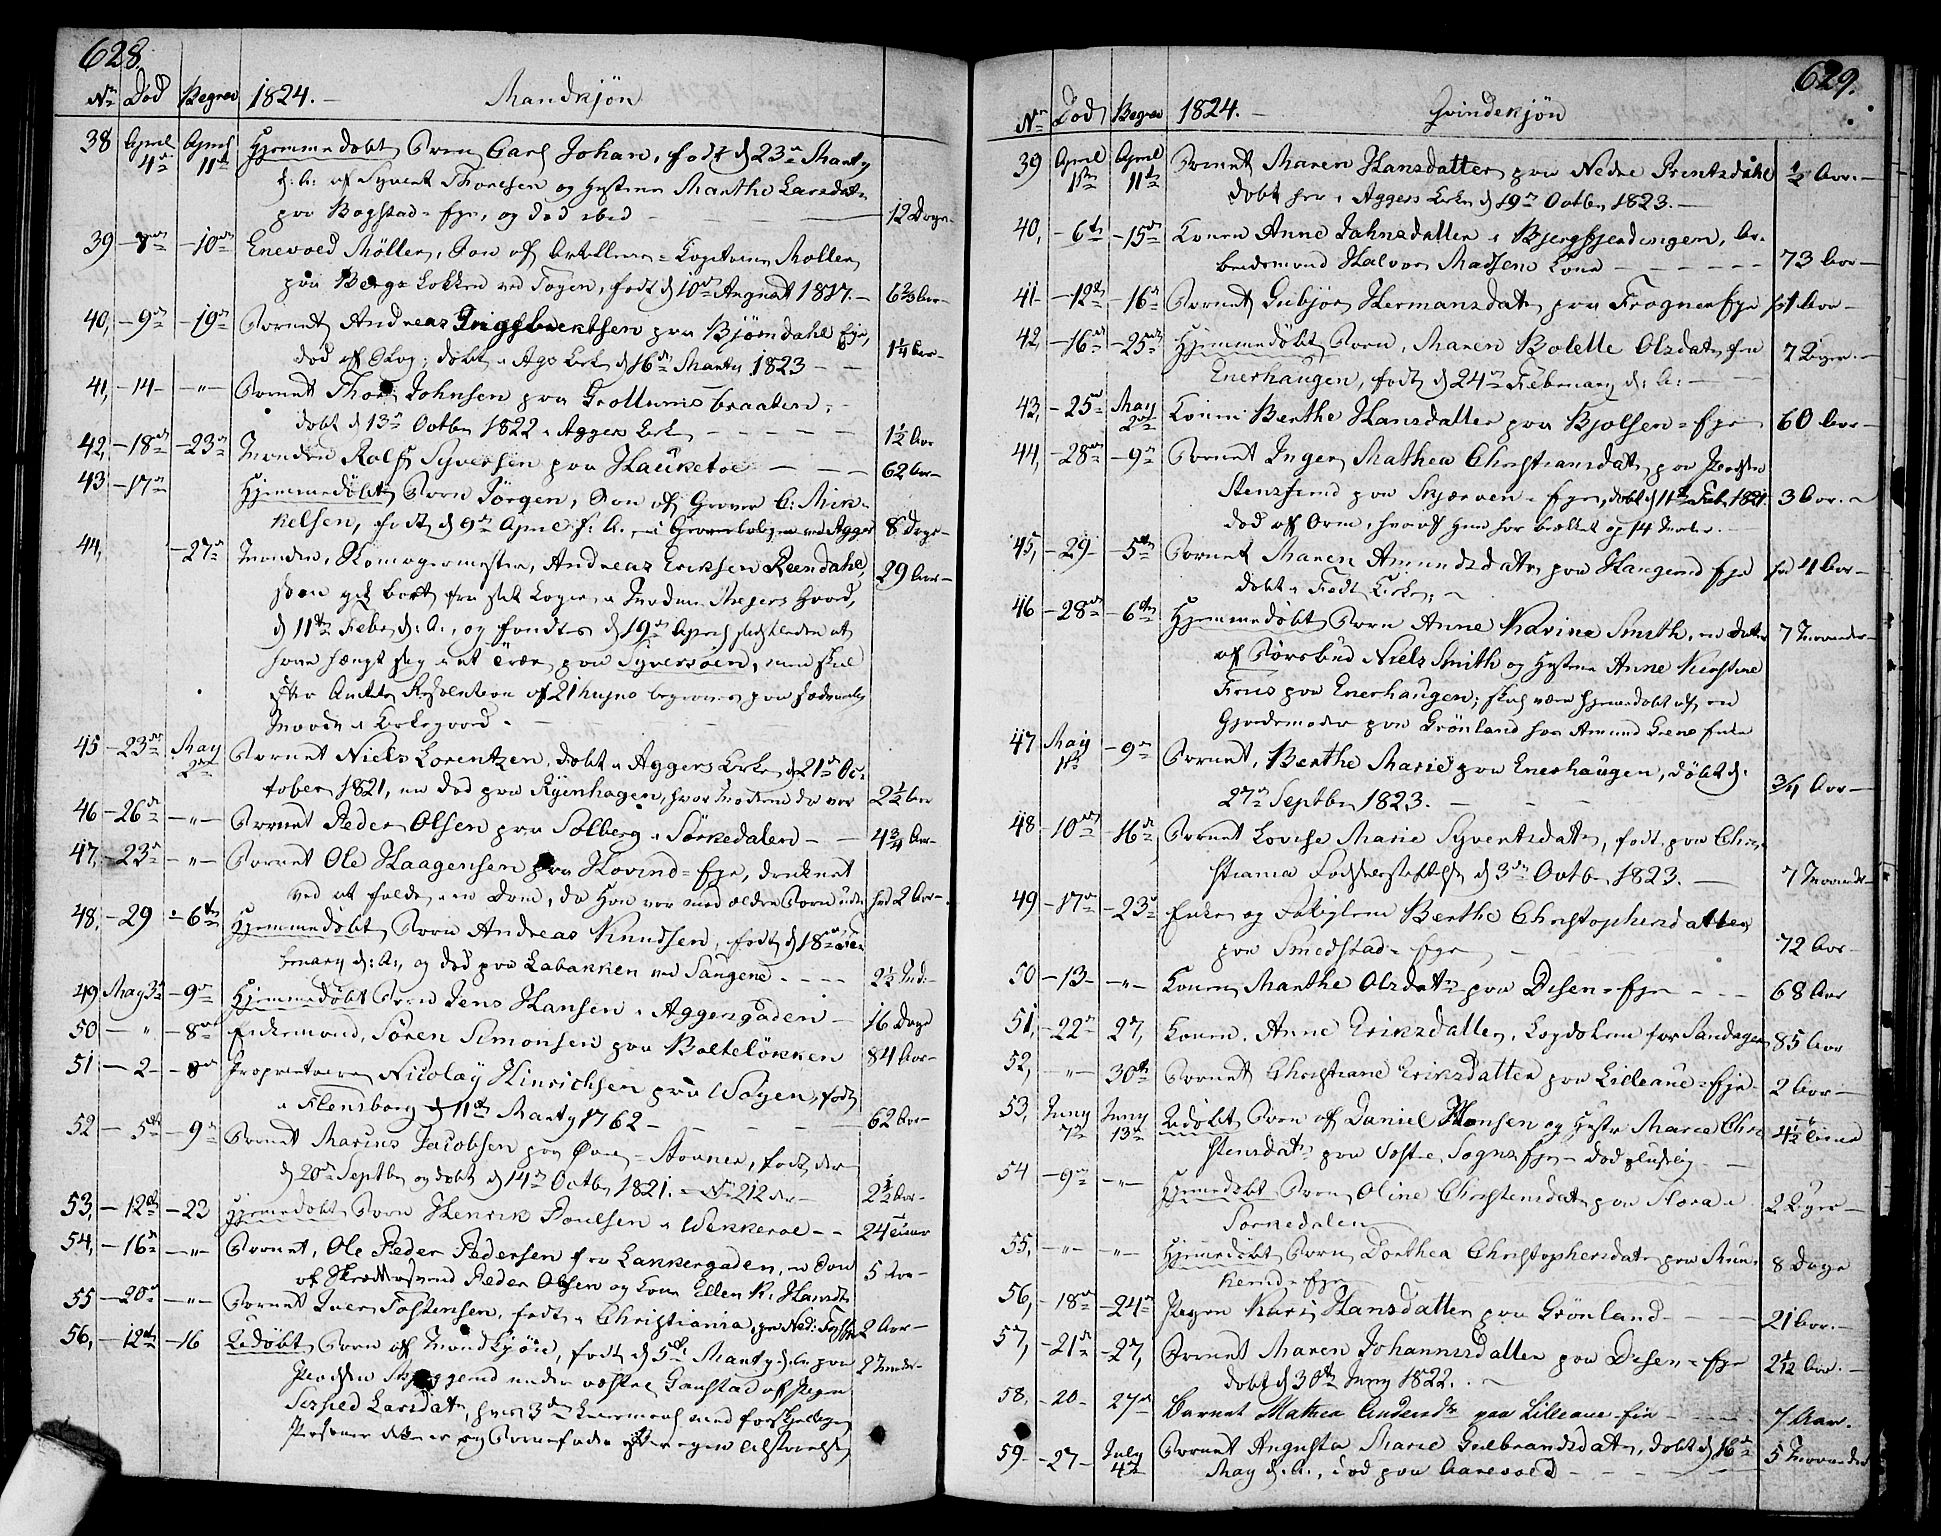 628.
Nr. Död Begrav 1824. – Mandkjön
38 April 4de April 11te Hjemmedöbt Barn Carl Johan, født d 23de Marty
d: A: af Syvert Thoresen og Hustrue Marthe Larsdatr
paa Bogstad-Eje, og død sted – 12 Dage –
39 – 8de – 10de Enevold Møller, Søn af Artillerie-Capitaine Møller
paa Bergs Løkken ved Tøyen, født d 10de August 1817. – 6 2/3 Aar –
40, – 9de – 19de Barnet Andreas Engelbrektsen paa Bjørndahl Eje,
død af Slag; døbt i Agers Kirke d 16de Marty 1823 – – 1 1/4 Aar –
41, – 14 – – „ – Barnet Thor Johnsen paa Grottumsbraaten, –
døbt d 13de Octbr 1822 i Aggers Kirke – – – – 1 1/2 Aar
42, – 18de – 23de Manden Rolf Syversen paa Hauketoe – – – 62 Aar –
43 – 17de Hjemmedöbt Barn Jörgen, Søn af Graver C: Mik-
kelsen, født d 9de April d: A. i Graverboligen ved Agger 8 Dage –
44, – 27de Manden, Skomagermester, Andreas Eriksen Reendahl, 29 Aar –
som gik bort fra sit Logie i Madme Meyers Gaard,
d 11te Febr d: A., og fandtes d 19de April
have hængt sig i et Træe paa Syversøen,
Resolution af 21 hujus begraves paa sædvanlig
Maade i Kirkegaard. –
45 – 23de May 2de Barnet Niels Lorentzen, døbt i Aggers Kirke d 21de Oc-
tober 1821, en død paa Ryenhagen, hvor Moderen da var 2 1/2 Aar
46 – 26de – „ – Barnet Peder Olsen paa Solberg i Sörkedalen – – 4 3/4 Aar –
47, – 23de – „ – Barnet Ole Haagensen paa Hovind-Eje, druknet
ved at falde i en Dam, da Han var med ældre Børn ude 2 Aar –
48, – 29 – 6te Hjemmedöbt Barn Andreas Knudsen, født d 18de Fe-
bruary d: A:, og død paa Labakken ved Saugene – – – – 2 1/2 Md. –
49 May 3de – 9de Hjemmedöbt Barn Jens Hansen i Aggersgaden – 16 Dage
50 – „ – 8de Enkemand, Søren Simonsen paa Bolteløkken 84 Aar –
51 – 2 – – 8de Proprietaire Nicolay Hinrichsen paa Woyen, født
i Flensborg d 11te Marty 1762 – – – – – 62 Aar –
52 – 5te – 9de Barnet Marius Jacobsen paa Øvre-Stovner, født der
d 20de Septbr og døbt d 14de Octbr 1821. – Nr 212 der – 2 1/2 Aar –
53, – 12te – 23 Hjemmedöbt Barn Henrik Poulsen i Wekkeroe – – 24 Timer
54, – 16de – „ – Barnet, Ole Peder Pedersen fra Lakkergaden, en Søn
af Skrædersvend Peder Olsen og Kone Ellen K: Handtr 5 Aar –
55 – 20de – „ – Barnet Iver Tostensen, født i Christiania, 2 Aar –
56, – 12te – 16 Udöbt Barn af Mandkjön, født d 5te Marty d: A: paa 2 Maaneder –
Pladsen Myggerud under vestre Gaustad af Pigen
Sersted Larsdatr, hvis 3de Leiermaal med forskjellige
Personer
629.
Nr. Död Begrav 1824. – Qvindekjön
39 April 1ste April 11te Barnet Maren Hansdatter paa Nedre Prentsdahl 1/2 Aar. –
døbt her i Aggers Kirke d 19de Octbr 1823. –
40, – 6te – 15de Konen Anne Jahnsdatter i Bjergfjerdingen, Ar-
beidsmand Halvor Madsens Kone – – – – – 73 Aar –
41 – 12te – 16de Barnet Gubjör Hermansdatr paa Frogner Eje 1 Aar –
42, – 16de – 25de Hjemmedöbt Barn, Maren Bolette Olsdatr fra 7 Uger. –
Enerhaugen, født d 24de February d: A: –
43, – 25de May 2de Konen Berthe Hansdatter paa Bjølsen-Eje 60 Aar –
44, – 28de – 9de Barnet Inger Mathea Christiansdatr paa Pladsen
Stensrud paa Skjærven-Eje, døbt d 11te Feb. 1821. 3 Aar. –
død af Orm, hvoraf hun har 14 Mdr. –
45, – 29 – – 5te Barnet Maren Amundsdatr paa Haugerud Eje 4 Aar –
døbt i Født Kirke; –
46 – 28de – 6te Hjemmedöbt Barn Anne Kavine Smith, en Datter 7 Maaneder –
af Börsbud Niels Smith og Hustrue Anne Kirstine
Friis paa Enerhaugen; skal være hjemmedöbt af en
Gjordemoder paa Grönland hos Amund Enke
47 May 1ste – 9de Barnet, Berthe Marie paa Enerhaugen, döbt d:
27de Septbr 1823. – – – 3/4 Aar –
48 – 10de – 16de Barnet Lovise Marie Syvertsdatr, født paa Chri-
stiania Fødselsstiftelse d 3de Octbr 1823. – 7 Maaneder –
49 – 17de – 23de Enke og Fattiglem Berthe Christophersdatter
paa Smedstad-Eje – – – 72 Aar –
50 – 13 – – „ – Konen Marthe Olsdatr paa Disen-Eje – – – 68 Aar
51, – 22de 27, Konen, Anne Eriksdatter, Lægdslem for Sandager 85 Aar
52, – „ – 30te Barnet Christiane Eriksdatter paa Lilleaue-Eje – 2 Aar –
53, Juny 7de Juny 13de Udöbt Barn af Daniel Hansen og Hustr Maria Chri- 4 1/2 Time
stensdatr paa Eje – død pludselig – –
54 – 9de – „ – Hjemmedöbt Barn Oline Christensdatr paa Slora i 2 Uger –
Sörkedalen
55, – „ – – „ – Hjemmedöbt Barn Dorthea Christophersdatr paa 8 Dage
kerud-Eje
56, – 18de – 24de Pigen Kari Hansdatter paa Grönland – – – 21 Aar. –
57, – 21de – 27, Barnet Maren Johannesdatter paa Disen-Eje 2 1/12 Aar. –
döbt d 30te Juny 1822. – –
58, – 20 – 27de Barnet Mathea Andersdtr paa Lilleaue Eie – – – – 7 Aar.
59 – 27 – July 4de Barnet Augusta Marie Gulbrandsdatr, døbt d 16de 5 Maaneder
May d: A:, död paa Aarevold – – –